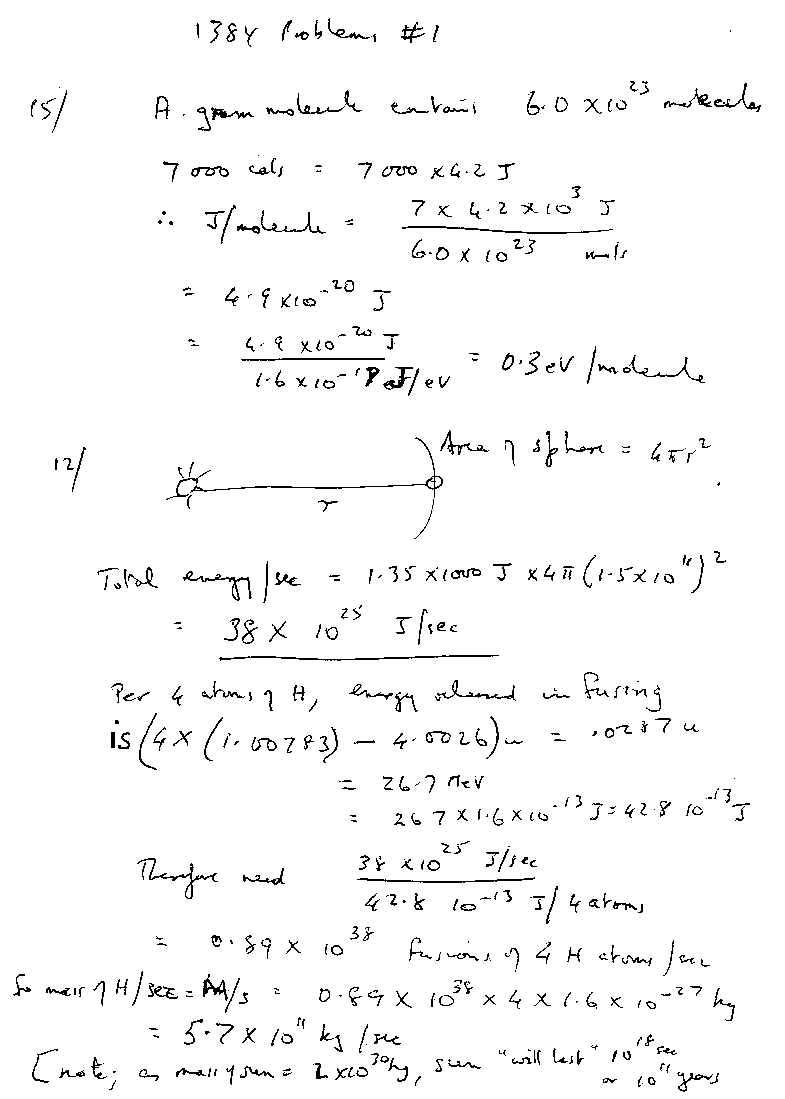 1384 Problems #1
15/ A. gram molecule contains 6.0 x 10^23 molecules
7 000 cals = 7 000 x 4.2 J
∴ J/molecule = 7 x 4.2 x 10^3 J
6.0 x 10^23 mols
= 4.9 x 10^-20 J
= 4.9 x 10^-20 J
1.6 x 10^-19 J/eV = 0.3 eV/molecule
12/ Area of sphere = 4πr^2
r
Total energy/sec = 1.35 x 1000 J x 4π (1.5 x 10^11)^2
= 38 x 10^25 J/sec
Per 4 atoms of H, energy released in fusing
is (4 x (1.00783) – 4.0026)u = .0287 u
= 26.7 MeV
= 26.7 x 1.6 x 10^-13 J = 42.8 10^-13 J
Therefore need 38 x 10^25 J/sec
42.8 10^-13 J/4 atoms
= 0.89 x 10^38 fusions of 4 H atoms/sec
So mass of H/sec = M/s = 0.89 x 10^38 x 4 x 1.6 x 10^-27 kg
= 5.7 x 10^11 kg/sec
[note; as mass of sun = 2 x 10^30 kg, sun "will last" 10^18 sec
or 10^11 years